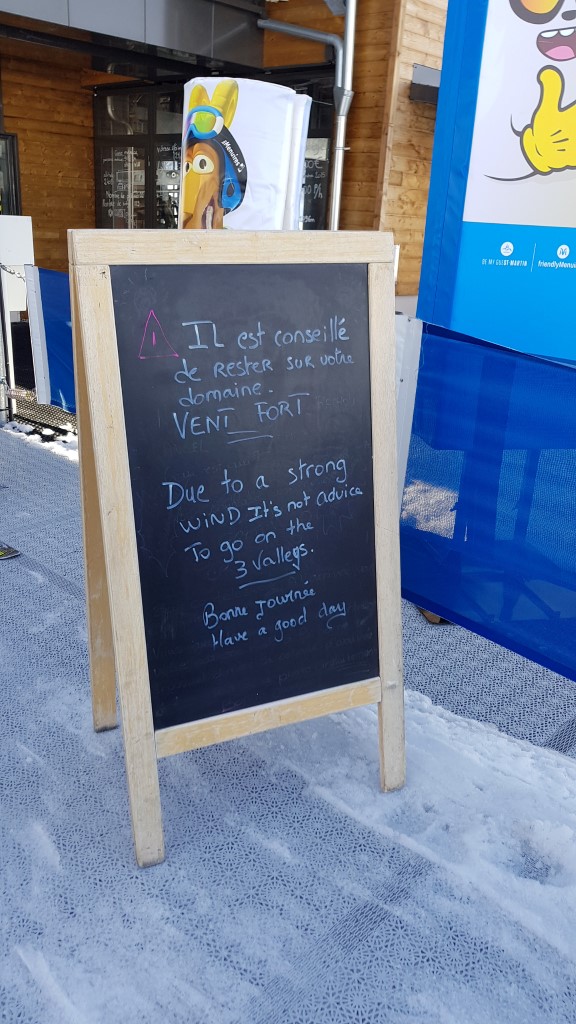 iMenuires
!
IL est conseillé
de RESTER SUR votre
domaine.
VENT FORT
Due to a strong
WIND It's not advice
To go on the
3 Valleys.
Bonne Journée
Have a good day
friendlyMenui